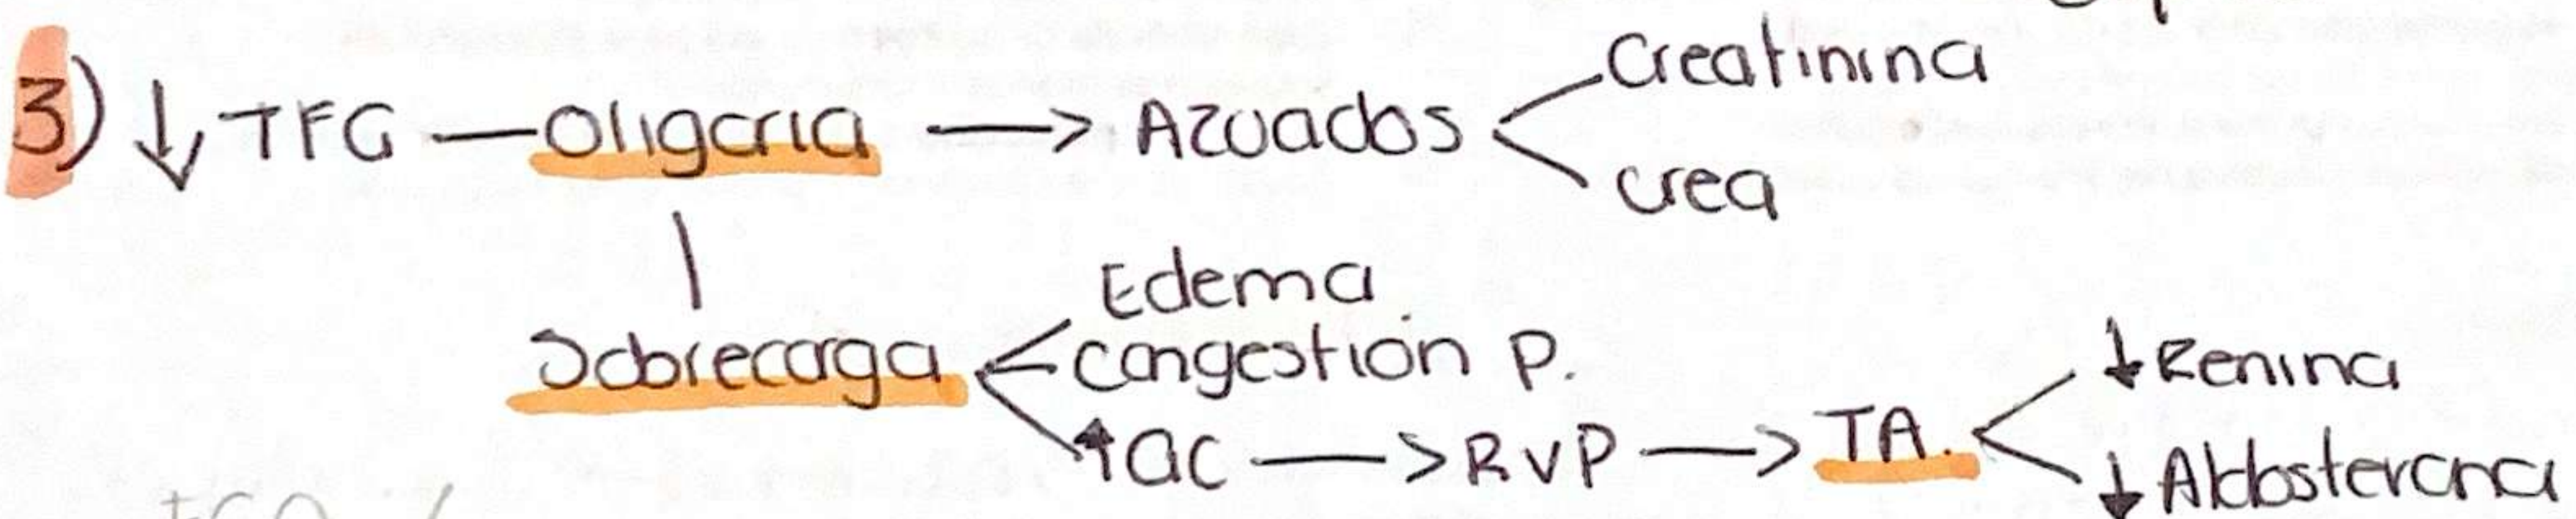 3) ↓ TFG — Oliguria → Azoados < Creatinina
urea
Sobrecarga < Edema
Congestión P.
↑ GC → RVP → TA. < ↓ Renina
↓ Aldosterona